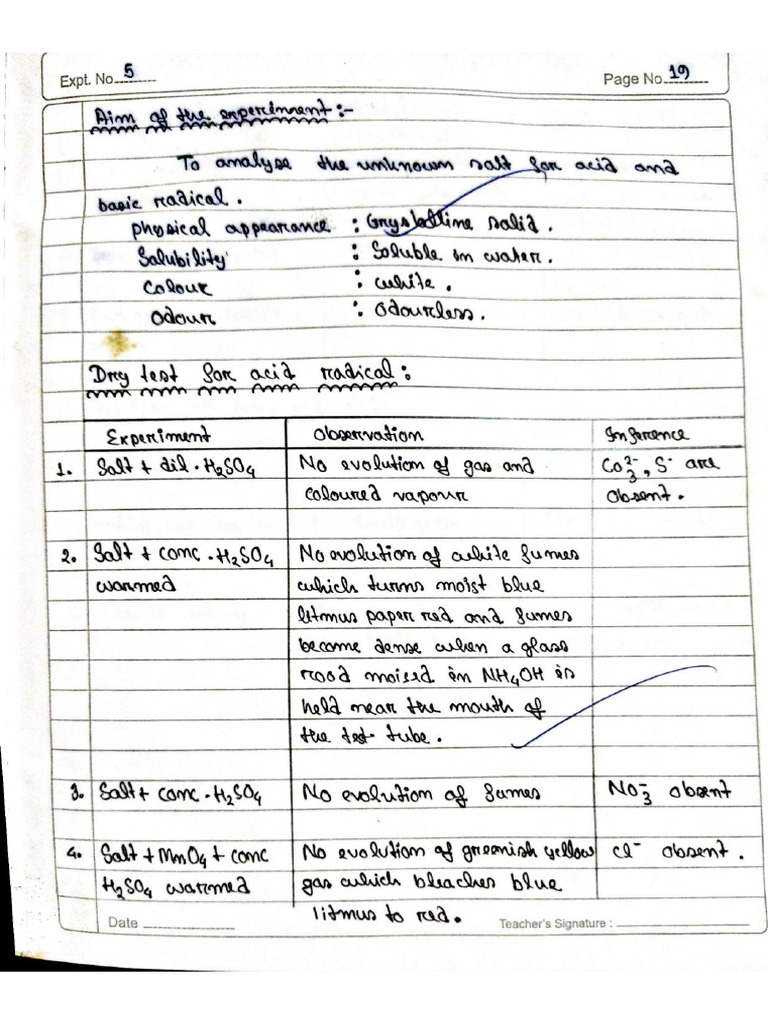 Expt. No. 5 Page No. 19
Aim of the experiment :-
To analyse the unknown salt for acid and
basic radical.
physical appearance : Crystalline solid.
Solubility : Soluble in water.
Colour : white.
Odour : Odourless.
Dry test for acid radical :
Experiment Observation Inference
1. Salt + dil. H₂SO₄ No evolution of gas and CO₃²⁻, S⁻ are
coloured vapour absent.
2. Salt + conc. H₂SO₄ No evolution of white fumes
warmed which turns moist blue
litmus paper red and fumes
become dense when a glass
rood moised in NH₄OH is
held near the mouth of
the test tube.
3. Salt + conc. H₂SO₄ No evolution of fumes NO₃⁻ absent
4. Salt + MnO₄ + conc No evolution of greenish yellow Cl⁻ absent.
H₂SO₄ warmed gas which bleaches blue
litmus to red.
Date Teacher's Signature :